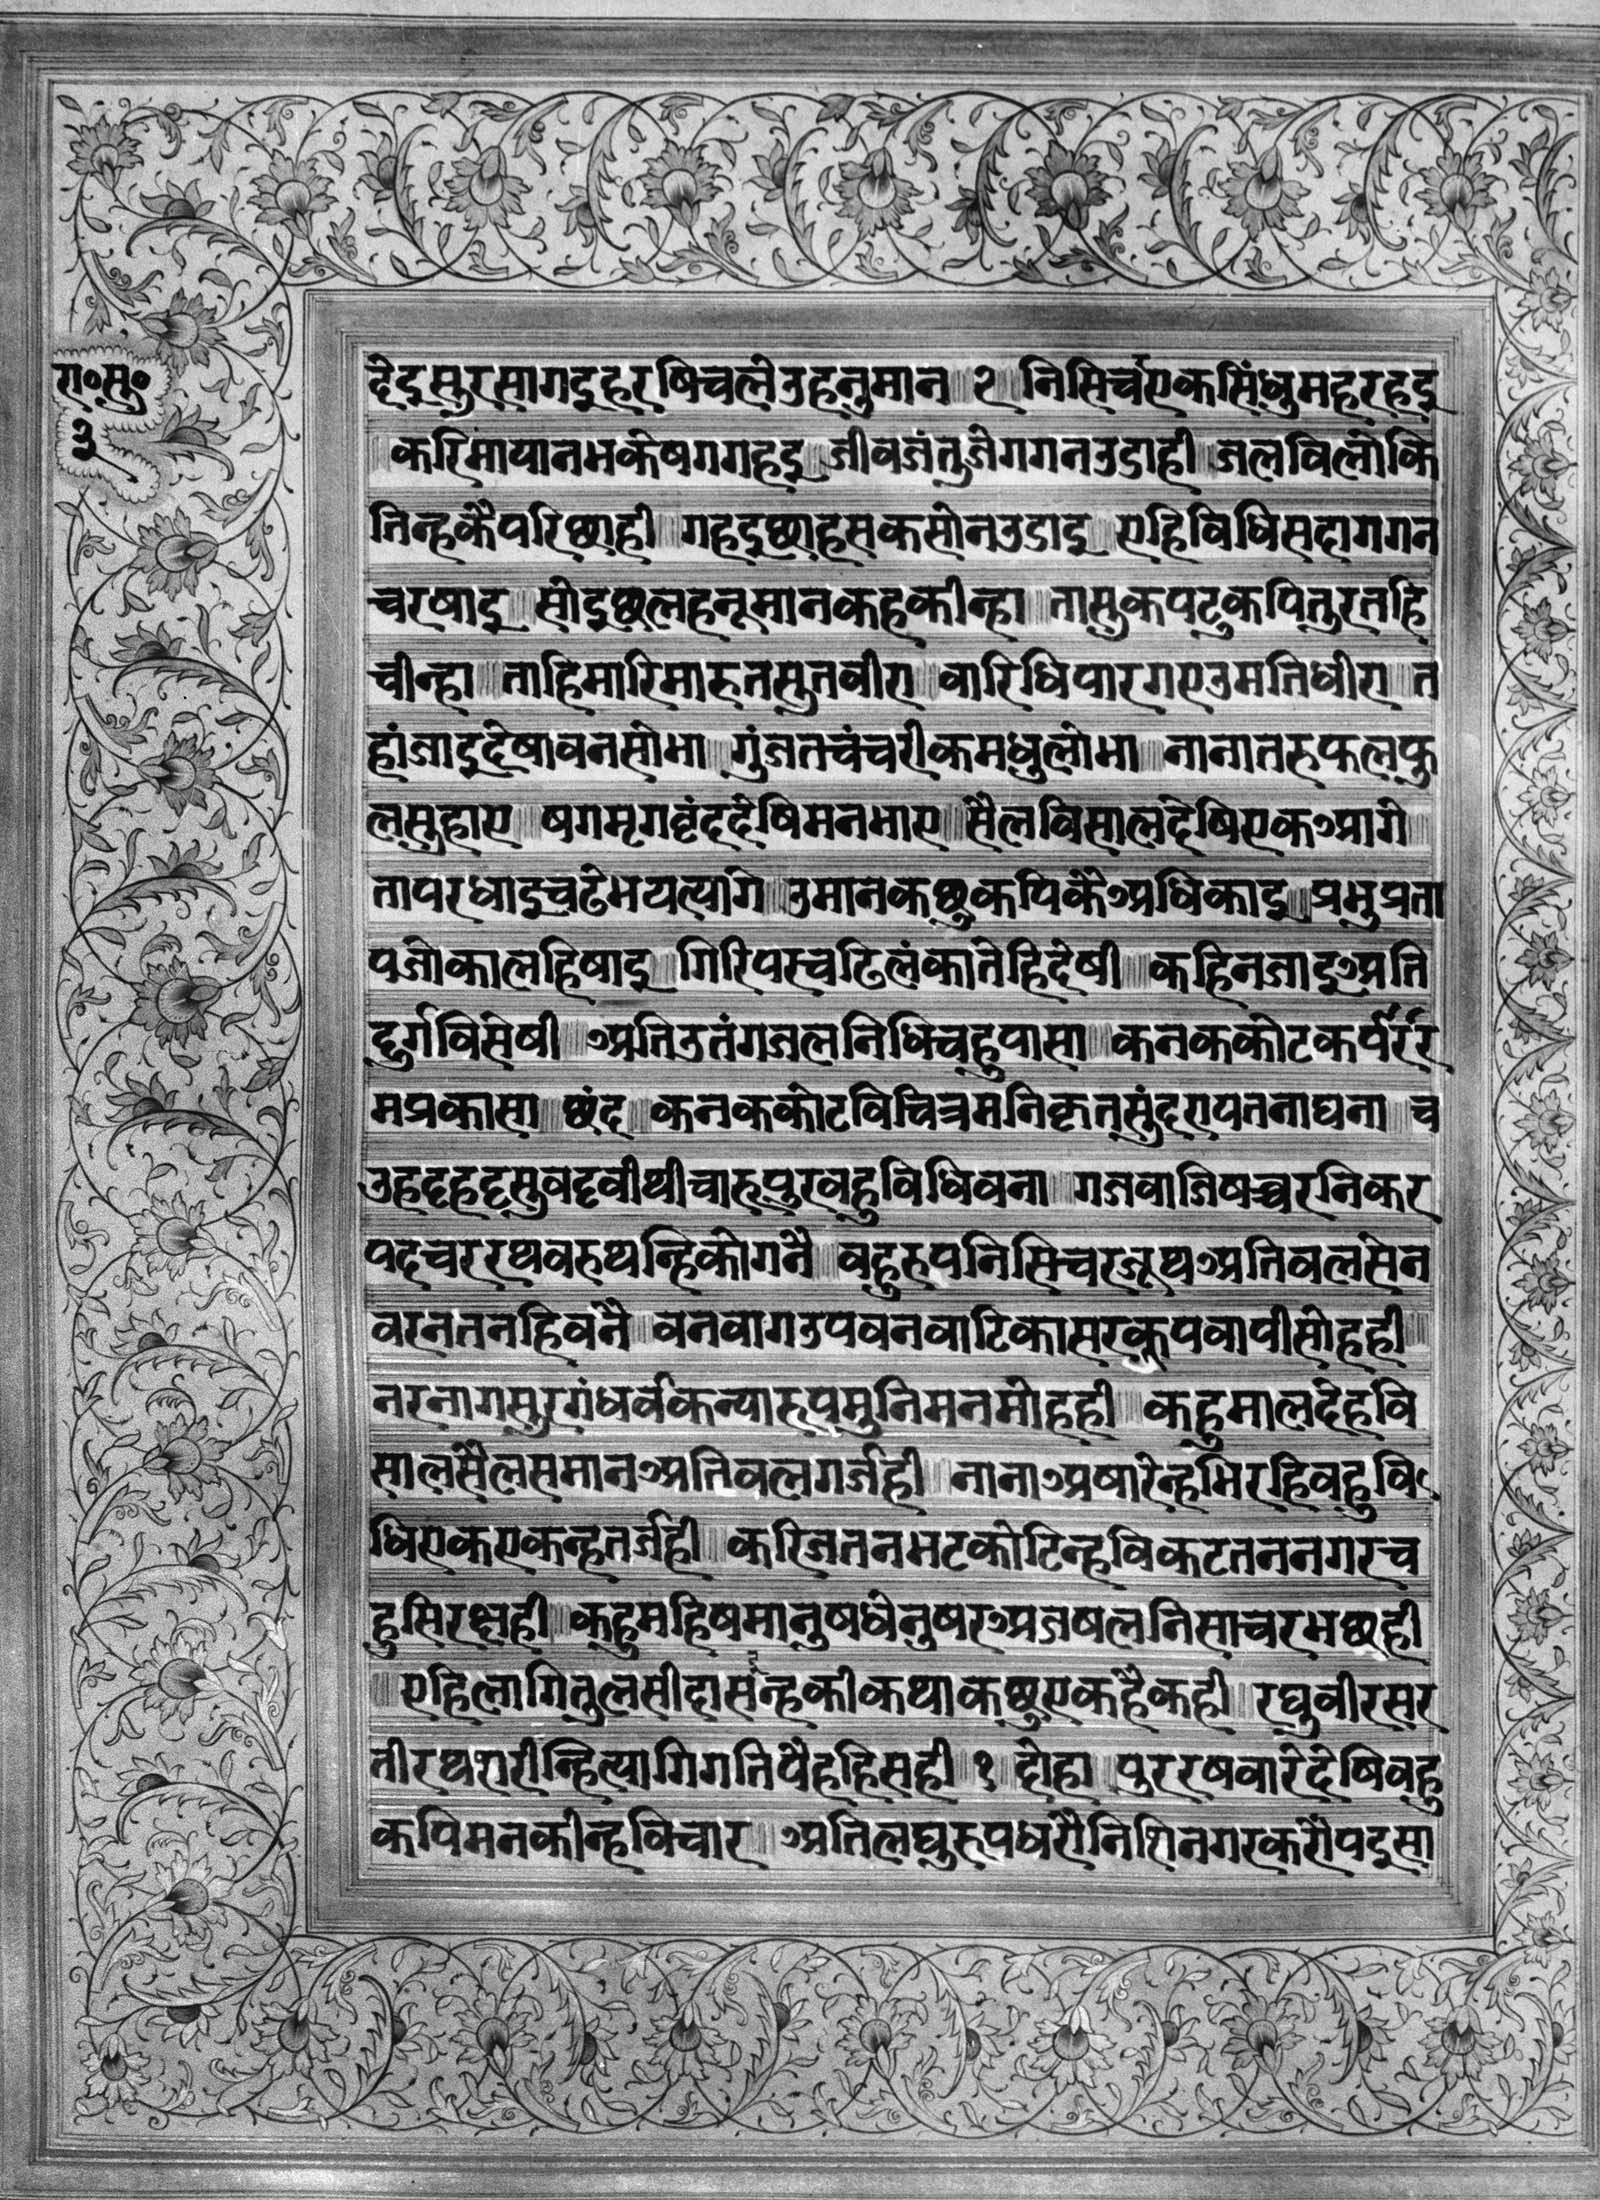 रा॰सुं॰
३
देइसुरसागइहरषिचलेउहनुमान २ निसिचरएकसिंधुमहरहइ
करिमायानभकेषगगहइ जीवजंतुजेगगनउडाही जलविलोकि
तिन्हकैपरिछाही गहइछाहसकसोनउडाइ एहिविधिसदागगन
चरषाइ सोइछलहनूमानकहकीन्हा तासुकपटुकपितुरतहि
चीन्हा ताहिमारिमारुतसुतवीरा वारिधिपारगएउमतिधीरा त
हांजाइदेषावनसोभा गुंजतचंचरीकमधुलोभा नानातरुफलफु
लसुहाए षगमृगवृंददेषिमनभाए सैलविसालदेषिएकआगे
तापरधाइचढेभयत्यागे उमानकछुकपिकैअधिकाइ प्रभुप्रता
पजोकालहिषाइ गिरिपरचढिलंकातेहिदेषी कहिनजाइअति
दुर्गविसेषी अतिउतंगजलनिधिचहुपासा कनककोटकरपरर
मप्रकासा छंद कनककोटविचित्रमनिकृतसुंदरायतनाघना च
उहट्टहट्टसुवट्टवीथीचारुपुरवहुविधिवना गजवाजिषच्चरनिकर
पदचररथवरुथन्हिकोगनै वहुरुपनिसिचरजूथअतिवलसेन
वरनतनहिवनै वनवागउपवनवाटिकासरकूपवापीसोहही
नरनागसुरगंधर्वकन्यारूपमुनिमनमोहही कहुमालदेहवि
सालसैलसमानअतिवलगर्जही नानाअषारेन्हभिरहिवहुवि
धिएकएकन्हतर्जही करिजतनभटकोटिन्हविकटतननगरच
हुसिरछही कहुमहिषमानुषधेनुषरअजषलनिसाचरभछही
एहिलागितुलसीदासइन्हकीकथाकछुएकहैकही रघुवीरसर
तीरथशरीन्हित्यागिगतिपैहहिसही १ दोहा पुररषवारेदेषिवहु
कपिमनकीन्हविचार अतिलघुरुपधरौनिशिनगरकरौपइसा